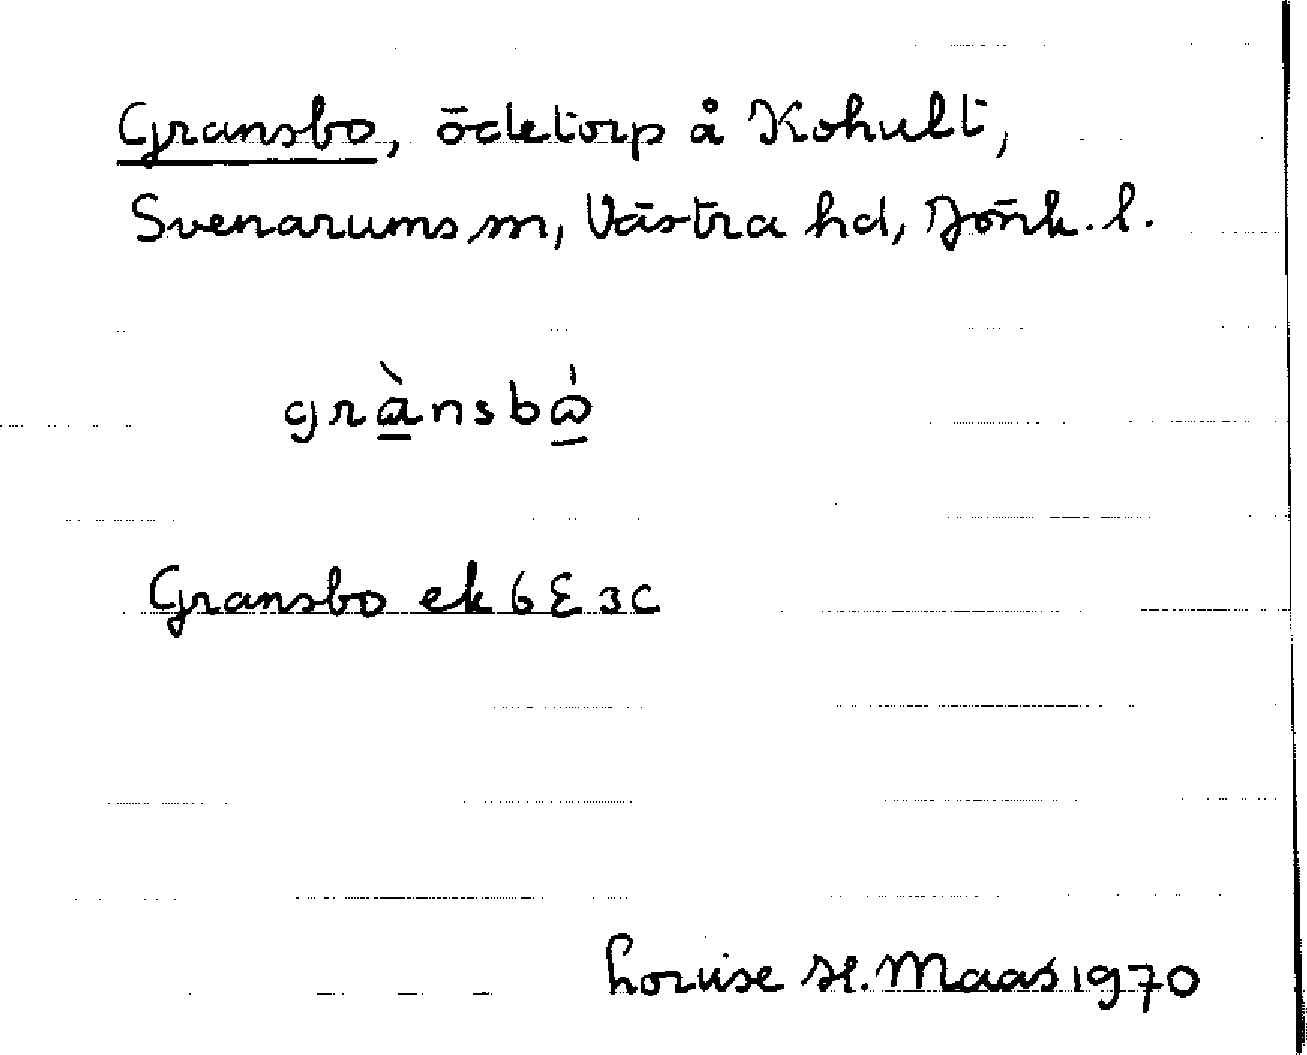 Gransbo, ödetorp å Kohult,
Svenarums sn, Västra hd, Jönk. l.
grànsbό̲
Gransbo ek 6E3c
Louise H. Maas 1970